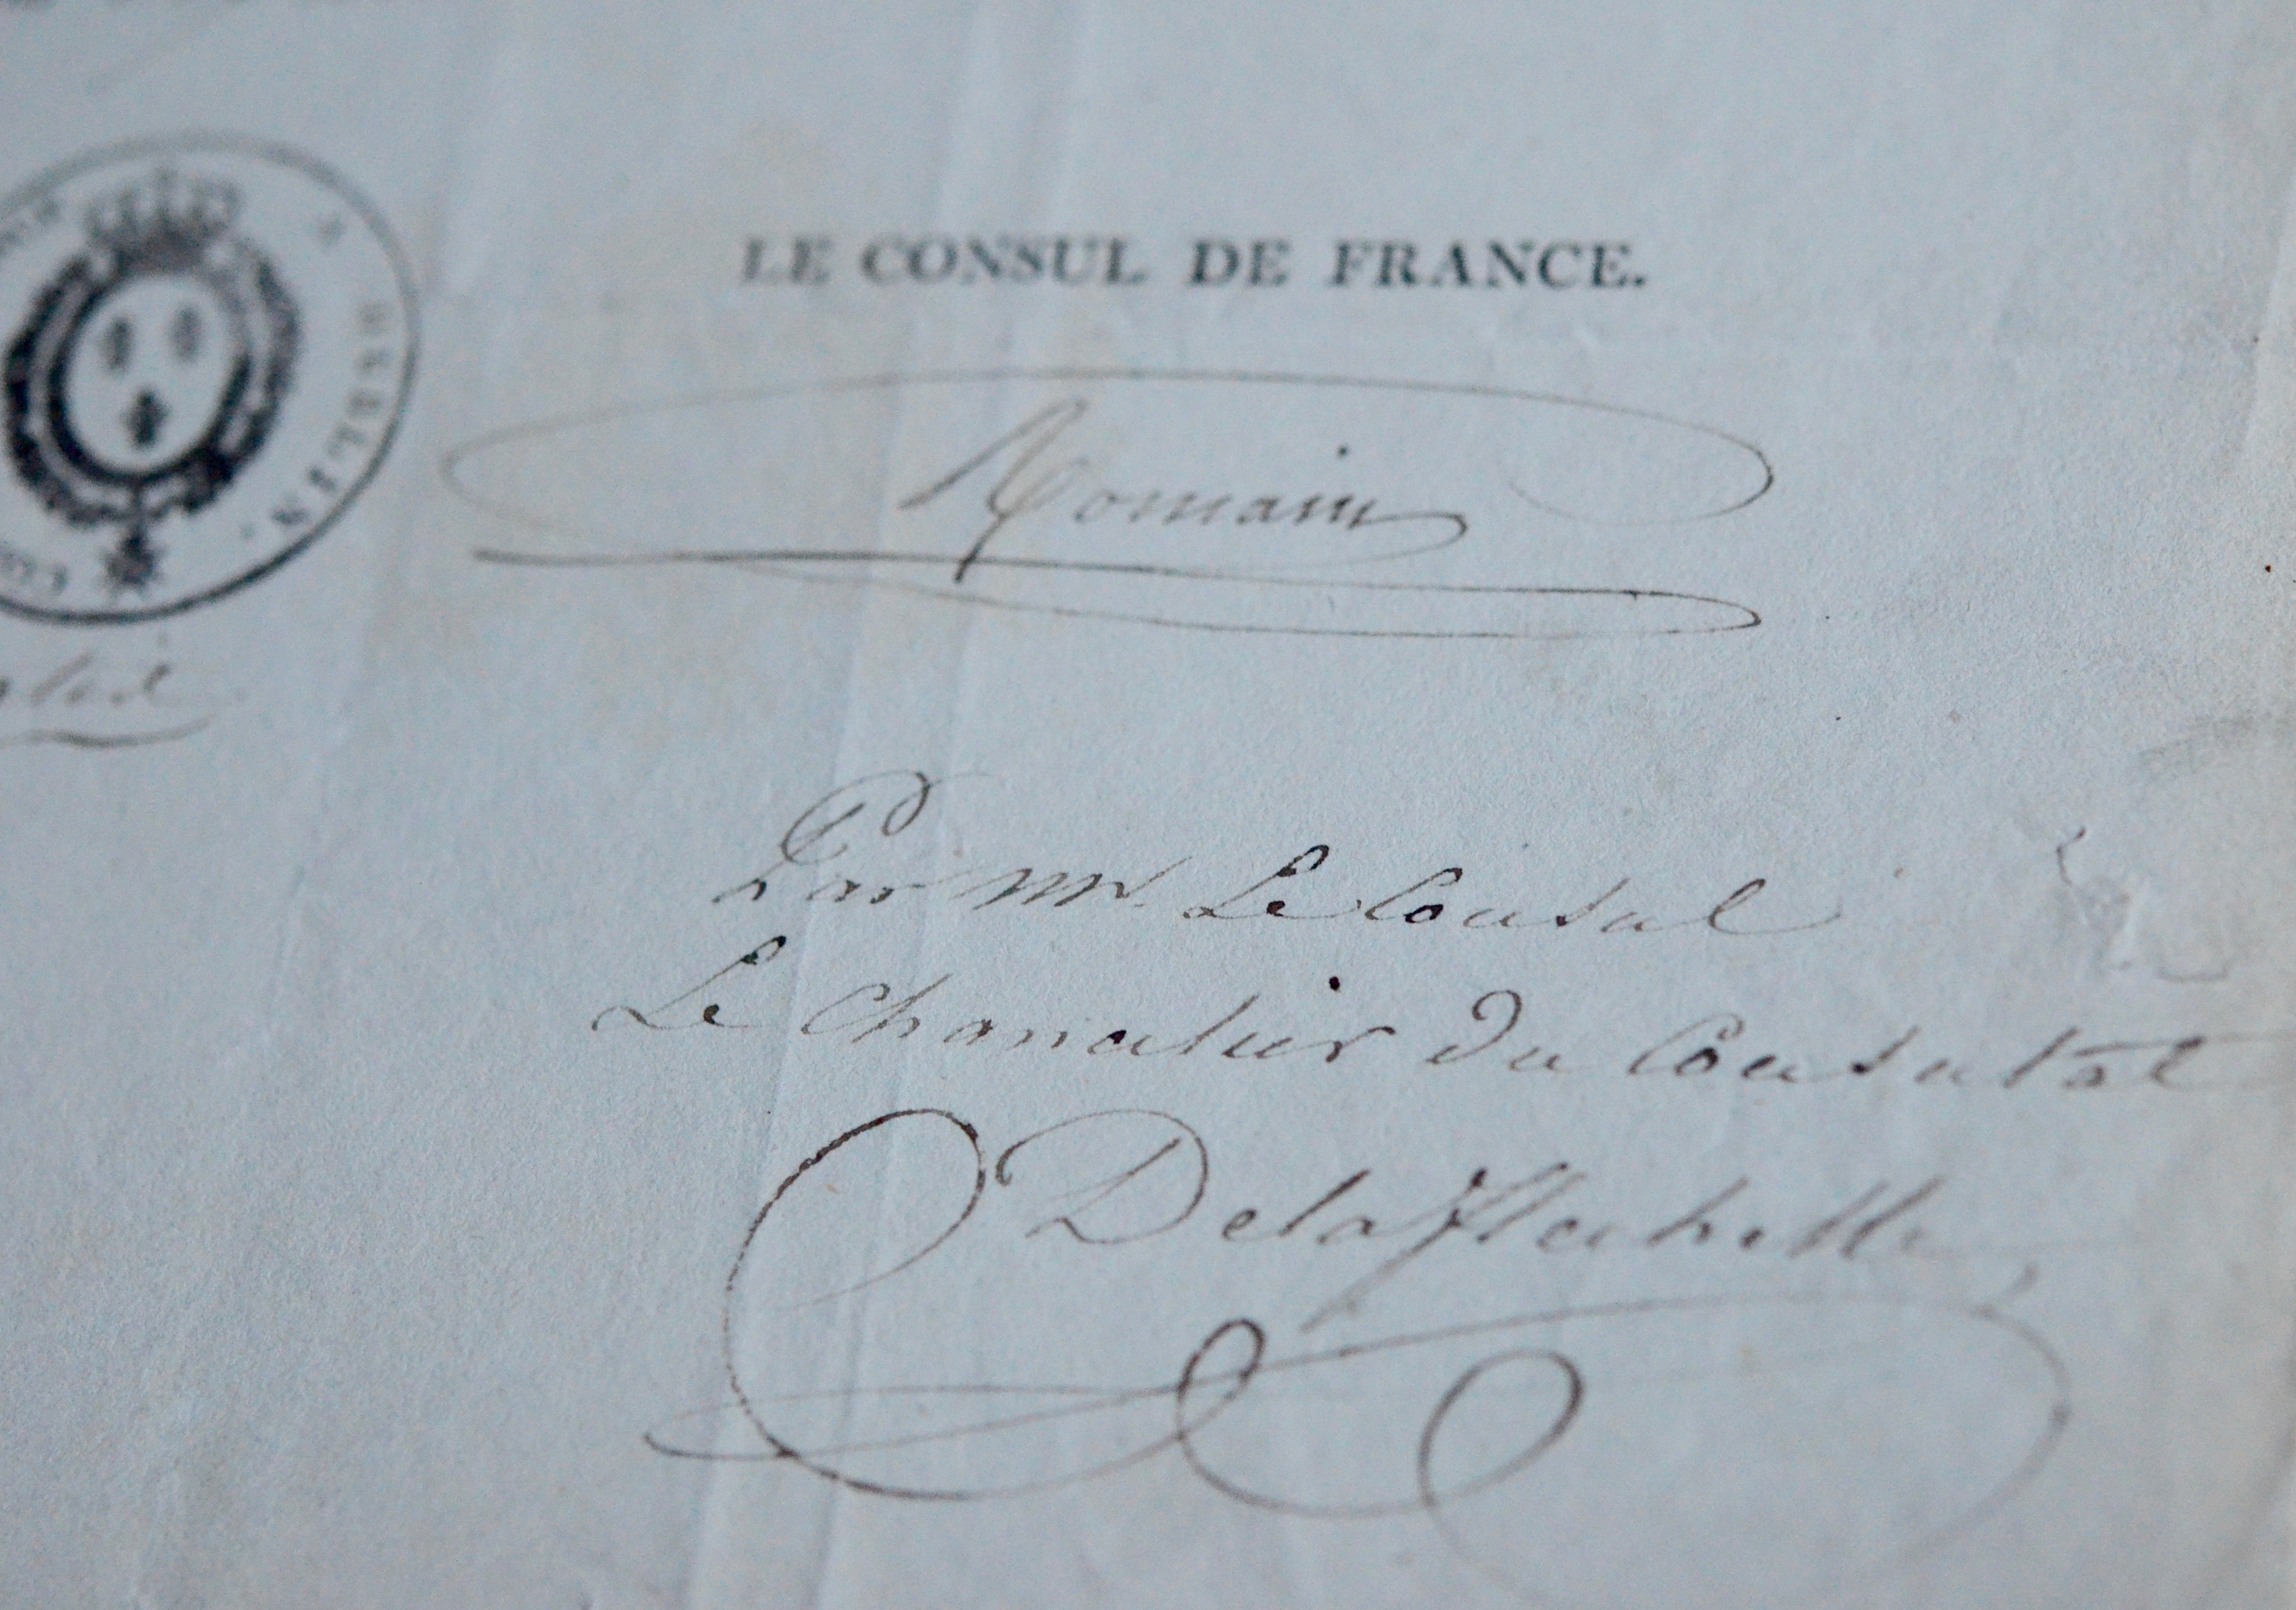 LE CONSUL DE FRANCE.
A BERLIN.
Romain
Par Mr. Le Consul
Le Chancelier du Consulat
Delaflechelle